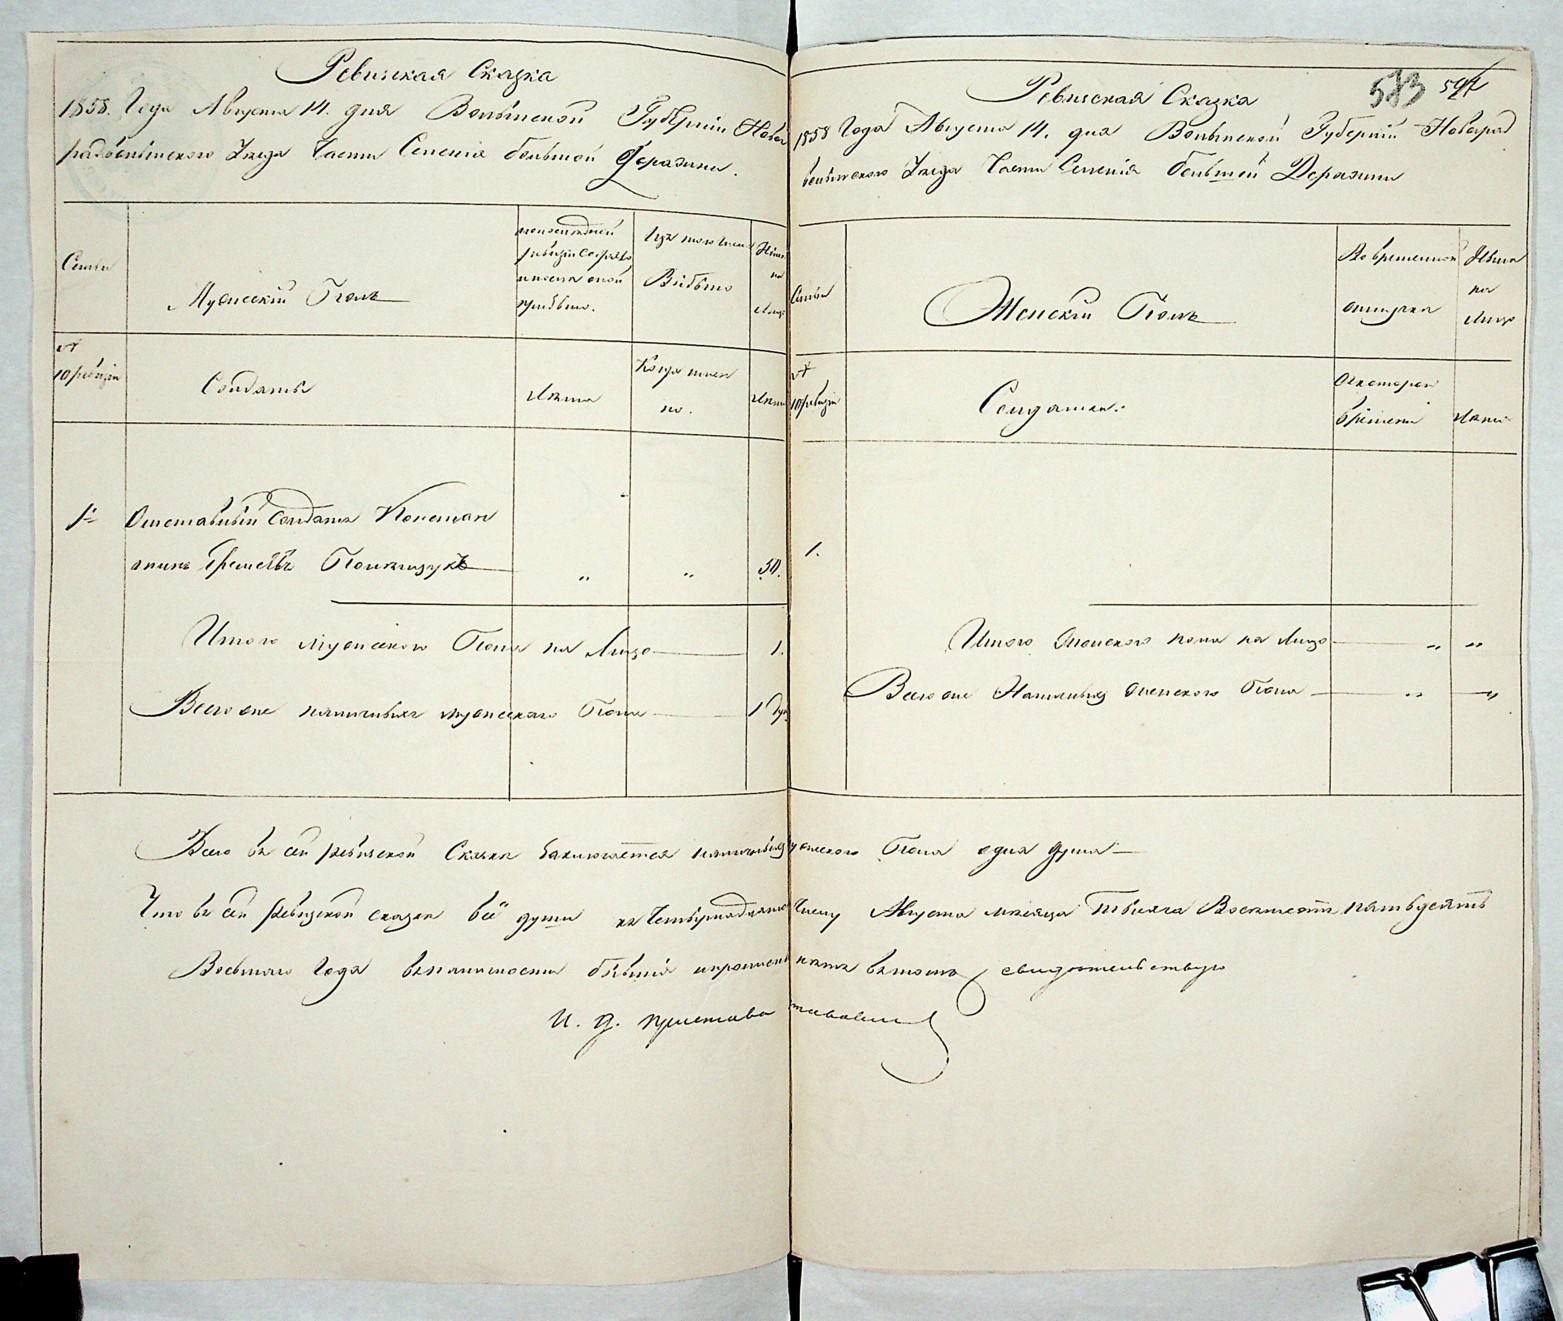 Ревизская Сказка
1858. Года Августа 14. дня Волынской Губерніи Новог
радволынского Уезда Части Селенія большой Деражни.
Семьи
Мужескій Полъ
по последней
ревизіи состояло
и после оной
прибыло.
Изъ того числа
Выбыло
Ныне
на
Лицо
№
10 ревизіи
Солдаты
Лета
Когда имен
но.
Лета
1й
Отставный Солдатъ Констан
тинъ Полищукъ
„
„
50.
Итого мужеского Пола на Лицо
1.
Всего же наличныхъ мужескаго Пола
1 душ
583
Ревизская Сказка
1858 Года Августа 14. дня Волынской Губерніи Новоград
волынского Уезда Части Селенія большой Деражни
Семьи
Женскій Полъ
Во временной
отлучке
Ныне
на
Лицо
№
10 ревизіи
Солдатки.
Съ котораго
времени
Лета
1.
Итого Женского пола на Лицо
„ „
Всего же Наличныхъ женского Пола
„ „
Всего въ сей ревизской Сказке Заключается наличныхъ мужеского Пола одна душа
Что въ сей ревизской сказке все души къ Четырнадцатому Числу Августа месяца Тысяча Восемьсотъ пятьдесятъ
Восьмого Года въ наличности бывшія въ томъ свидетельствую
И. д. пристава